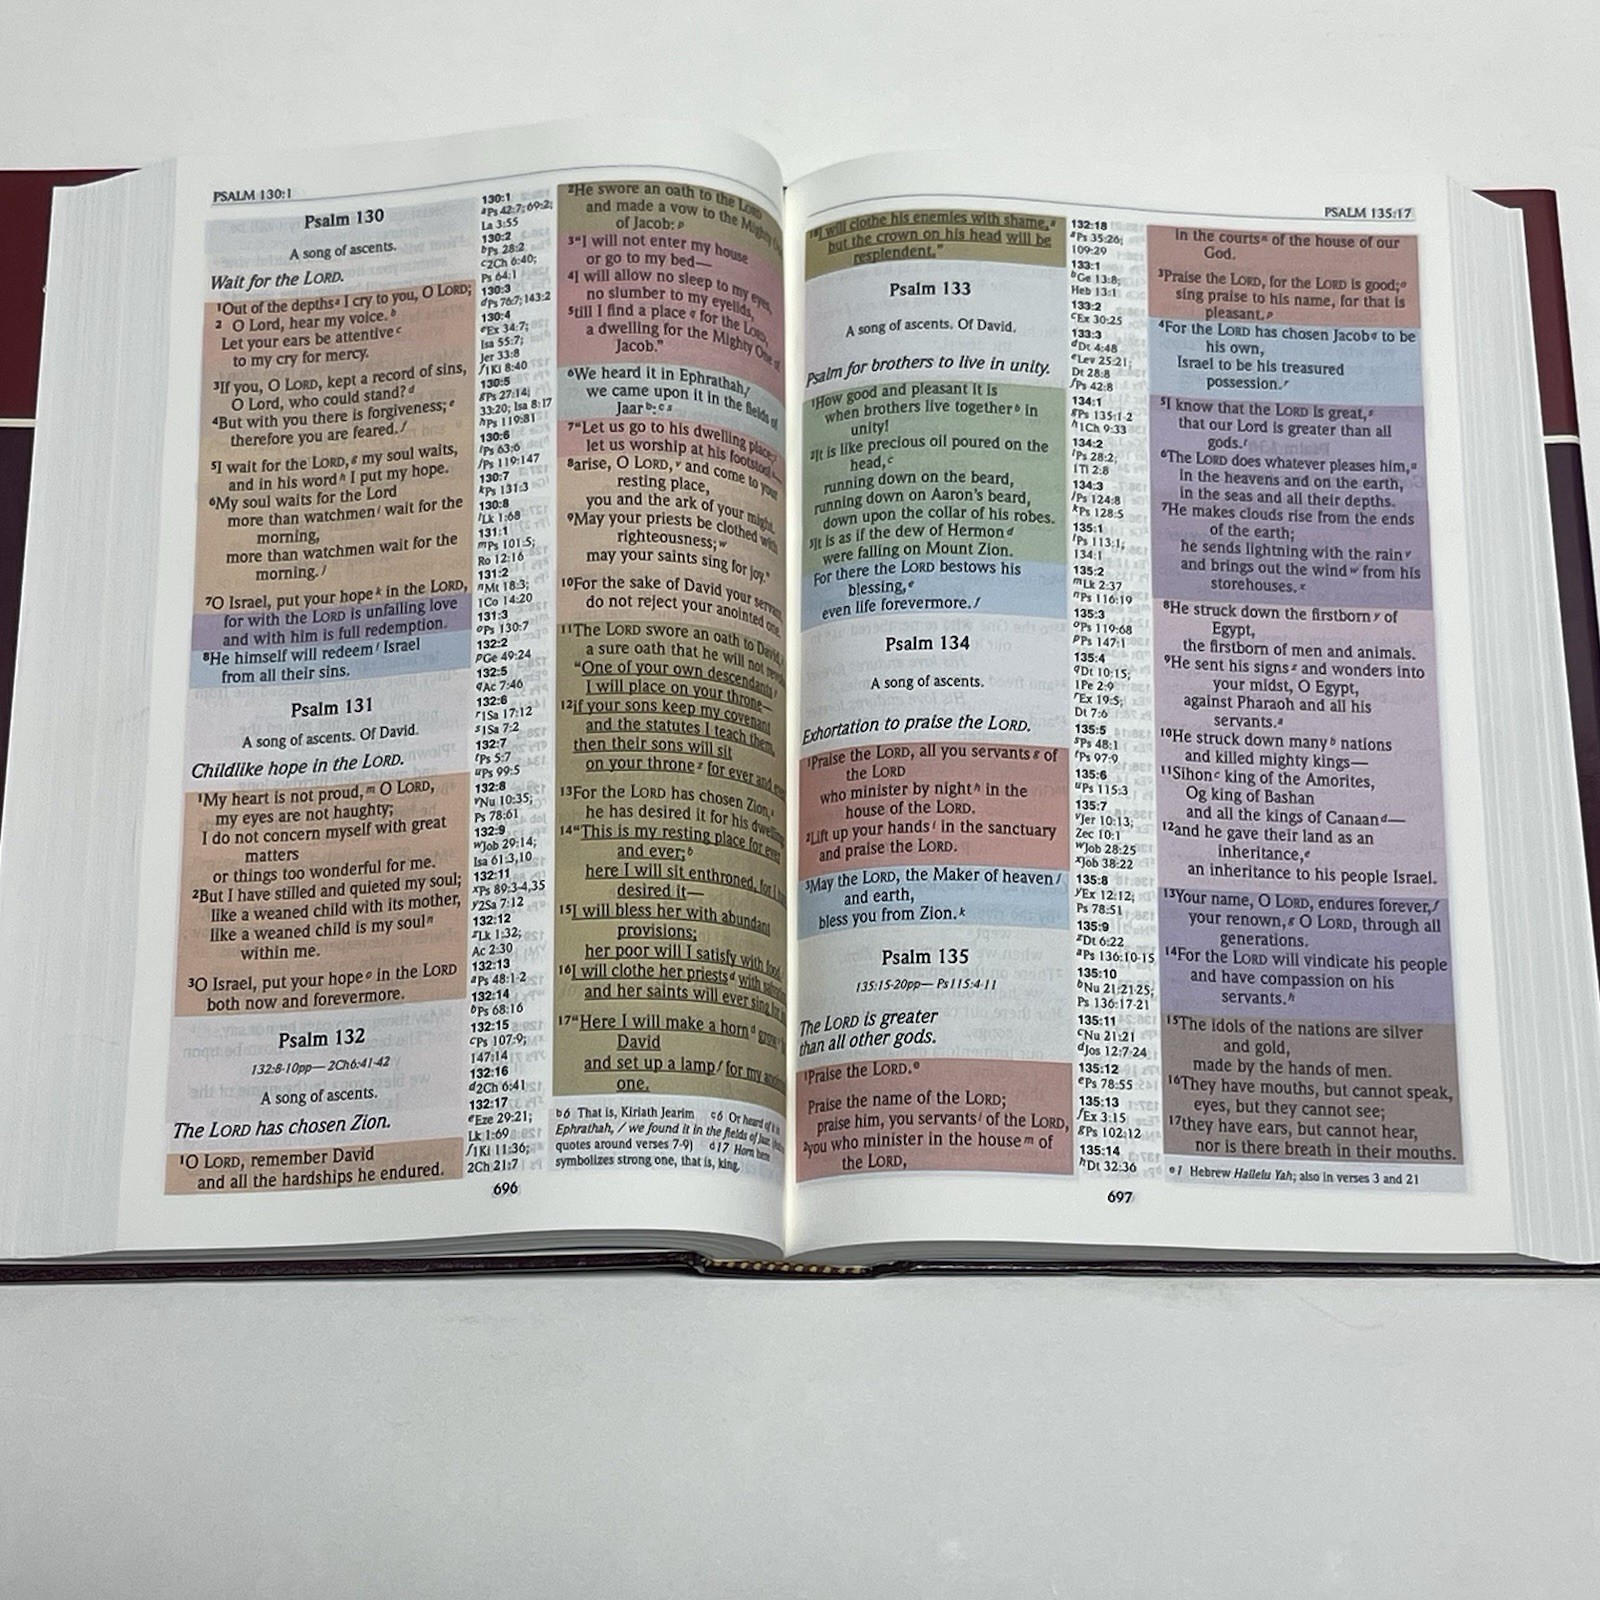 PSALM 130:1
Psalm 130
A song of ascents.
Wait for the LORD.
1Out of the depths a I cry to you, O LORD;
2 O Lord, hear my voice. b
Let your ears be attentive c
to my cry for mercy.
3If you, O LORD, kept a record of sins,
O Lord, who could stand? d
4But with you there is forgiveness; e
therefore you are feared. f
5I wait for the LORD, g my soul waits,
and in his word h I put my hope.
6My soul waits for the Lord
more than watchmen i wait for the
morning,
more than watchmen wait for the
morning. j
7O Israel, put your hope k in the LORD,
for with the LORD is unfailing love
and with him is full redemption.
8He himself will redeem l Israel
from all their sins.
Psalm 131
A song of ascents. Of David.
Childlike hope in the LORD.
1My heart is not proud, m O LORD,
my eyes are not haughty;
I do not concern myself with great
matters
or things too wonderful for me.
2But I have stilled and quieted my soul;
like a weaned child with its mother,
like a weaned child is my soul n
within me.
3O Israel, put your hope o in the LORD
both now and forevermore.
Psalm 132
132:8-10pp— 2Ch6:41-42
A song of ascents.
The LORD has chosen Zion.
1O LORD, remember David
and all the hardships he endured.
130:1
a Ps 42:7; 69:2;
La 3:55
130:2
b Ps 28:2
c 2Ch 6:40;
Ps 64:1
130:3
d Ps 76:7; 143:2
130:4
e Ex 34:7;
Isa 55:7;
Jer 33:8
f 1Ki 8:40
130:5
g Ps 27:14;
33:20; Isa 8:17
h Ps 119:81
130:6
i Ps 63:6
j Ps 119:147
130:7
k Ps 131:3
130:8
l Lk 1:68
131:1
m Ps 101:5;
Ro 12:16
131:2
n Mt 18:3;
1Co 14:20
131:3
o Ps 130:7
132:2
p Ge 49:24
132:5
q Ac 7:46
132:6
r 1Sa 17:12
s 1Sa 7:2
132:7
t Ps 5:7
u Ps 99:5
132:8
v Nu 10:35;
Ps 78:61
132:9
w Job 29:14;
Isa 61:3,10
132:11
x Ps 89:3-4,35
y 2Sa 7:12
132:12
z Lk 1:32;
Ac 2:30
132:13
a Ps 48:1-2
132:14
b Ps 68:16
132:15
c Ps 107:9;
147:14
132:16
d 2Ch 6:41
132:17
e Eze 29:21;
Lk 1:69
f 1Ki 11:36;
2Ch 21:7
2He swore an oath to the LORD
and made a vow to the Mighty One
of Jacob: p
3"I will not enter my house
or go to my bed—
4I will allow no sleep to my eyes,
no slumber to my eyelids,
5till I find a place q for the LORD,
a dwelling for the Mighty One of
Jacob."
6We heard it in Ephrathah, r
we came upon it in the fields of
Jaar b: c s
7"Let us go to his dwelling place; t
let us worship at his footstool—
8arise, O LORD, v and come to your
resting place,
you and the ark of your might.
9May your priests be clothed with
righteousness; w
may your saints sing for joy."
10For the sake of David your servant,
do not reject your anointed one.
11The LORD swore an oath to David,
a sure oath that he will not
"One of your own descendants
I will place on your throne—
12if your sons keep my covenant
and the statutes I teach them,
then their sons will sit
on your throne z for ever and
13For the LORD has chosen Zion, a
he has desired it for his dwelling
14"This is my resting place for ever
and ever; b
here I will sit enthroned, for I
desired it—
15I will bless her with abundant
provisions;
her poor will I satisfy with food.
16I will clothe her priests d with
and her saints will ever sing for
17"Here I will make a horn d grow
David
and set up a lamp f for my
one.
b6 That is, Kiriath Jearim c6 Or heard of it in
Ephrathah, / we found it in the fields of Jaar.
quotes around verses 7-9) d17 Horn here
symbolizes strong one, that is, king.
696
PSALM 135:17
18I will clothe his enemies with shame, g
but the crown on his head will be
resplendent."
Psalm 133
A song of ascents. Of David.
Psalm for brothers to live in unity.
1How good and pleasant it is
when brothers live together b in
unity!
2It is like precious oil poured on the
head, c
running down on the beard,
running down on Aaron's beard,
down upon the collar of his robes.
3It is as if the dew of Hermon d
were falling on Mount Zion.
For there the LORD bestows his
blessing, e
even life forevermore. f
Psalm 134
A song of ascents.
Exhortation to praise the LORD.
1Praise the LORD, all you servants g of
the LORD
who minister by night h in the
house of the LORD.
2Lift up your hands i in the sanctuary
and praise the LORD.
3May the LORD, the Maker of heaven j
and earth,
bless you from Zion. k
Psalm 135
135:15-20pp— Ps115:4-11
The LORD is greater
than all other gods.
1Praise the LORD. e
Praise the name of the LORD;
praise him, you servants l of the LORD,
2you who minister in the house m of
the LORD,
132:18
a Ps 35:26;
109:29
133:1
b Ge 13:8;
Heb 13:1
133:2
c Ex 30:25
133:3
d Dt 4:48
e Lev 25:21;
Dt 28:8
f Ps 42:8
134:1
g Ps 135:1-2
h 1Ch 9:33
134:2
i Ps 28:2;
1Ti 2:8
134:3
j Ps 124:8
k Ps 128:5
135:1
l Ps 113:1;
134:1
135:2
m Lk 2:37
n Ps 116:19
135:3
o Ps 119:68
p Ps 147:1
135:4
q Dt 10:15;
1Pe 2:9
r Ex 19:5;
Dt 7:6
135:5
s Ps 48:1
t Ps 97:9
135:6
u Ps 115:3
135:7
v Jer 10:13;
Zec 10:1
w Job 28:25
x Job 38:22
135:8
y Ex 12:12;
Ps 78:51
135:9
z Dt 6:22
a Ps 136:10-15
135:10
b Nu 21:21-25;
Ps 136:17-21
135:11
c Nu 21:21
d Jos 12:7-24
135:12
e Ps 78:55
135:13
f Ex 3:15
g Ps 102:12
135:14
h Dt 32:36
in the courts n of the house of our
God.
3Praise the LORD, for the LORD is good; o
sing praise to his name, for that is
pleasant. p
4For the LORD has chosen Jacob q to be
his own,
Israel to be his treasured
possession. r
5I know that the LORD is great, s
that our Lord is greater than all
gods. t
6The LORD does whatever pleases him, u
in the heavens and on the earth,
in the seas and all their depths.
7He makes clouds rise from the ends
of the earth;
he sends lightning with the rain v
and brings out the wind w from his
storehouses. x
8He struck down the firstborn y of
Egypt,
the firstborn of men and animals.
9He sent his signs z and wonders into
your midst, O Egypt,
against Pharaoh and all his
servants. a
10He struck down many b nations
and killed mighty kings—
11Sihon c king of the Amorites,
Og king of Bashan
and all the kings of Canaan d—
12and he gave their land as an
inheritance, e
an inheritance to his people Israel.
13Your name, O LORD, endures forever, f
your renown, g O LORD, through all
generations.
14For the LORD will vindicate his people
and have compassion on his
servants. h
15The idols of the nations are silver
and gold,
made by the hands of men.
16They have mouths, but cannot speak,
eyes, but they cannot see;
17they have ears, but cannot hear,
nor is there breath in their mouths.
e1 Hebrew Hallelu Yah; also in verses 3 and 21
697